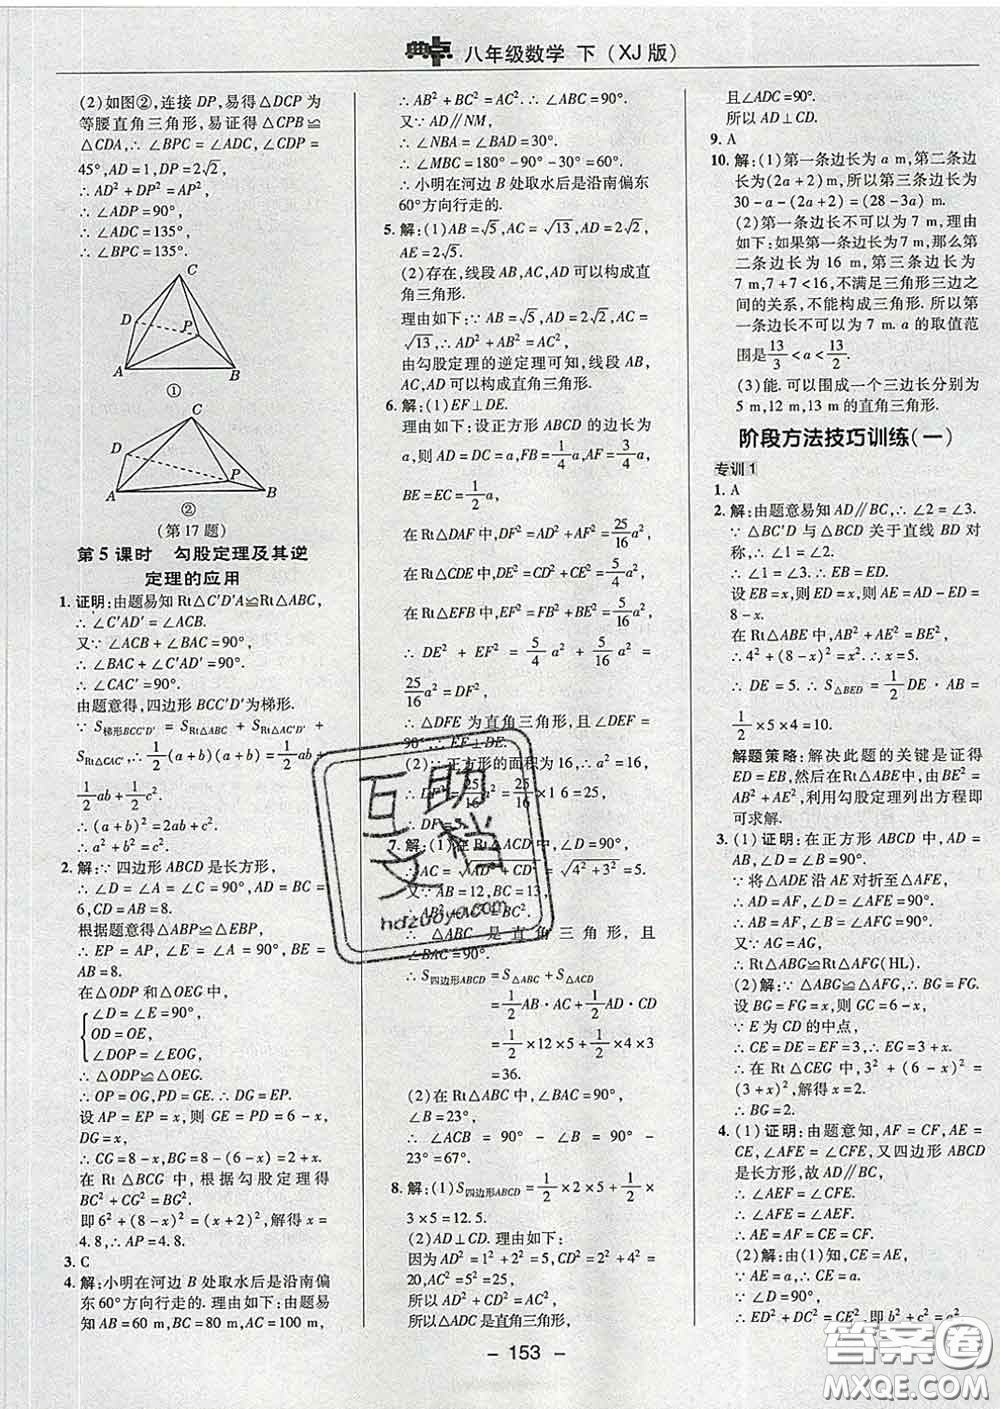 典点 八年级数学 下（XJ版）
(2)如图②,连接 DP,易得△DCP 为
等腰直角三角形,易证得△CPB≌
△CDA,∴∠BPC=∠ADC,∠CDP=
45°,AD=1,DP=2√2,
∴AD²+DP²=AP²,
∴∠ADP=90°,
∴∠ADC=135°,
∴∠BPC=135°.
C
D
P
A
B
①
C
D
P
A
B
②
(第17题)
第5课时 勾股定理及其逆
定理的应用
1. 证明:由题易知 Rt△C′D′A≌Rt△ABC,
∴∠C′AD′=∠ACB.
又∵∠ACB+∠BAC=90°,
∴∠BAC+∠C′AD′=90°.
∴∠CAC′=90°.
由题意得,四边形 BCC′D′为梯形.
∵S梯形BCC′D′=SRt△ABC+SRt△AC′D′+
SRt△CAC′,∴1/2(a+b)(a+b)=
1/2ab+1/2ab+1/2c².
∴(a+b)²=2ab+c².
∴a²+b²=c².
2. 解:∵四边形 ABCD 是长方形,
∴∠D=∠A=∠C=90°,AD=BC=
6,CD=AB=8.
根据题意得△ABP≌△EBP,
∴EP=AP,∠E=∠A=90°,BE=
AB=8.
在△ODP 和△OEG 中,
∠D=∠E=90°,
OD=OE,
∠DOP=∠EOG,
∴△ODP≌△OEG.
∴OP=OG,PD=GE.∴DG=EP.
设 AP=EP=x,则 GE=PD=6-x,
DG=x,
∴CG=8-x,BG=8-(6-x)=2+x.
在 Rt△BCG 中,根据勾股定理得
BC²+CG²=BG².
即 6²+(8-x)²=(x+2)²,解得 x=
4.8,∴AP=4.8.
3. C
4. 解:小明在河边 B 处取水后是沿南偏
东60°方向行走的.理由如下:由题易
知 AB=60 m,BC=80 m,AC=100 m,
∴AB²+BC²=AC².∴∠ABC=90°.
又∵AD∥NM,
∴∠NBA=∠BAD=30°.
∴∠MBC=180°-90°-30°=60°.
∴小明在河边 B 处取水后是沿南偏东
60°方向行走的.
5. 解:(1)AB=√5,AC=√13,AD=2√2,
AE=2√5.
(2)存在,线段 AB,AC,AD 可以构成直
角三角形.
理由如下:∵AB=√5,AD=2√2,AC=
√13,∴AD²+AB²=AC²,
由勾股定理的逆定理可知,线段 AB,
AC,AD 可以构成直角三角形.
6. 解:(1)EF⊥DE.
理由如下:设正方形 ABCD 的边长为
a,则 AD=DC=a,FB=1/4a,AF=3/4a,
BE=EC=1/2a,
在 Rt△DAF 中,DF²=AD²+AF²=25/16a²,
在 Rt△CDE 中,DE²=CD²+CE²=5/4a²,
在 Rt△EFB 中,EF²=FB²+BE²=5/16a²,
∴DE²+EF²=5/4a²+5/16a²=
25/16a²=DF²,
∴△DFE 为直角三角形,且∠DEF=
90°.∴EF⊥DE.
(2)∵正方形的面积为16,∴a²=16,
∴DF²=25/16a²=25/16×16=25,
∴DF=5.
7. 解:(1)在 Rt△ACD 中,∠D=90°,
∴AC=√AD²+CD²=√4²+3²=5.
又∵AB=12,BC=13,
∴AB²+AC²=BC².
∴△ABC 是直角三角形,且
∠BAC=90°.
∴S四边形ABCD=S△ABC+S△ACD
=1/2AB·AC+1/2AD·CD
=1/2×12×5+1/2×4×3
=36.
(2)在 Rt△ABC 中,∠BAC=90°,
∠B=23°,
∴∠ACB=90°-∠B=90°-
23°=67°.
8. 解:(1)S四边形ABCD=1/2×2×5+1/2×
3×5=12.5.
(2)AD⊥CD.理由如下:
因为 AD²=1²+2²=5,CD²=2²+4²=
20,AC²=5²=25,
所以 AD²+CD²=AC².
所以△ADC 是直角三角形,
且∠ADC=90°.
所以 AD⊥CD.
9. A
10. 解:(1)第一条边长为 a m,第二条边
长为(2a+2) m,所以第三条边长为
30-a-(2a+2)=(28-3a) m.
(2)第一条边长不可以为7 m,理由
如下:如果第一条边长为7 m,那么第
二条边长为16 m,第三条边长为
7 m,7+7<16,不满足三角形三边之
间的关系,不能构成三角形.所以第
一条边长不可以为7 m.a 的取值范
围是13/3<a<13/2.
(3)能.可以围成一个三边长分别为
5 m,12 m,13 m 的直角三角形.
阶段方法技巧训练(一)
专训1
1. A
2. 解:由题意易知 AD∥BC,∴∠2=∠3.
∵△BC′D 与△BCD 关于直线 BD 对
称,∴∠1=∠2.
∴∠1=∠3.∴EB=ED.
设 EB=x,则 ED=x,AE=AD-ED=
8-x.
在 Rt△ABE 中,AB²+AE²=BE²,
∴4²+(8-x)²=x².∴x=5.
∴DE=5.∴S△BED=1/2DE·AB=
1/2×5×4=10.
解题策略:解决此题的关键是证得
ED=EB,然后在 Rt△ABE中,由 BE²=
AB²+AE²,利用勾股定理列出方程即
可求解.
3. (1)证明:在正方形 ABCD 中,AD=
AB,∠D=∠B=90°.
∵将△ADE 沿 AE 对折至△AFE,
∴AD=AF,∠D=∠AFE=90°.
∴AB=AF,∠B=∠AFG=90°.
又∵AG=AG,
∴Rt△ABG≌Rt△AFG(HL).
(2)解:∵△ABG≌△AFG,∴BG=FG.
设 BG=FG=x,则 GC=6-x,
∵E 为 CD 的中点,
∴CE=DE=EF=3,∴EG=3+x.
∴在 Rt△CEG 中,3²+(6-x)²=
(3+x)²,解得 x=2.
∴BG=2.
4. (1)证明:由题意知,AF=CF,AE=
CE,∠AFE=∠CFE,又四边形 ABCD
是长方形,故 AD∥BC,
∴∠AEF=∠CFE.
∴∠AFE=∠AEF.
∴AE=AF=CE=CF.
(2)解:由(1)知,CE=AE,
∵AE=a,∴CE=a.
∵∠D=90°,
∴ED²+DC²=CE²,即 b²+c²=a².
- 153 -
互助
文档
hdzuoye.com
答案圈
MXQE.COM